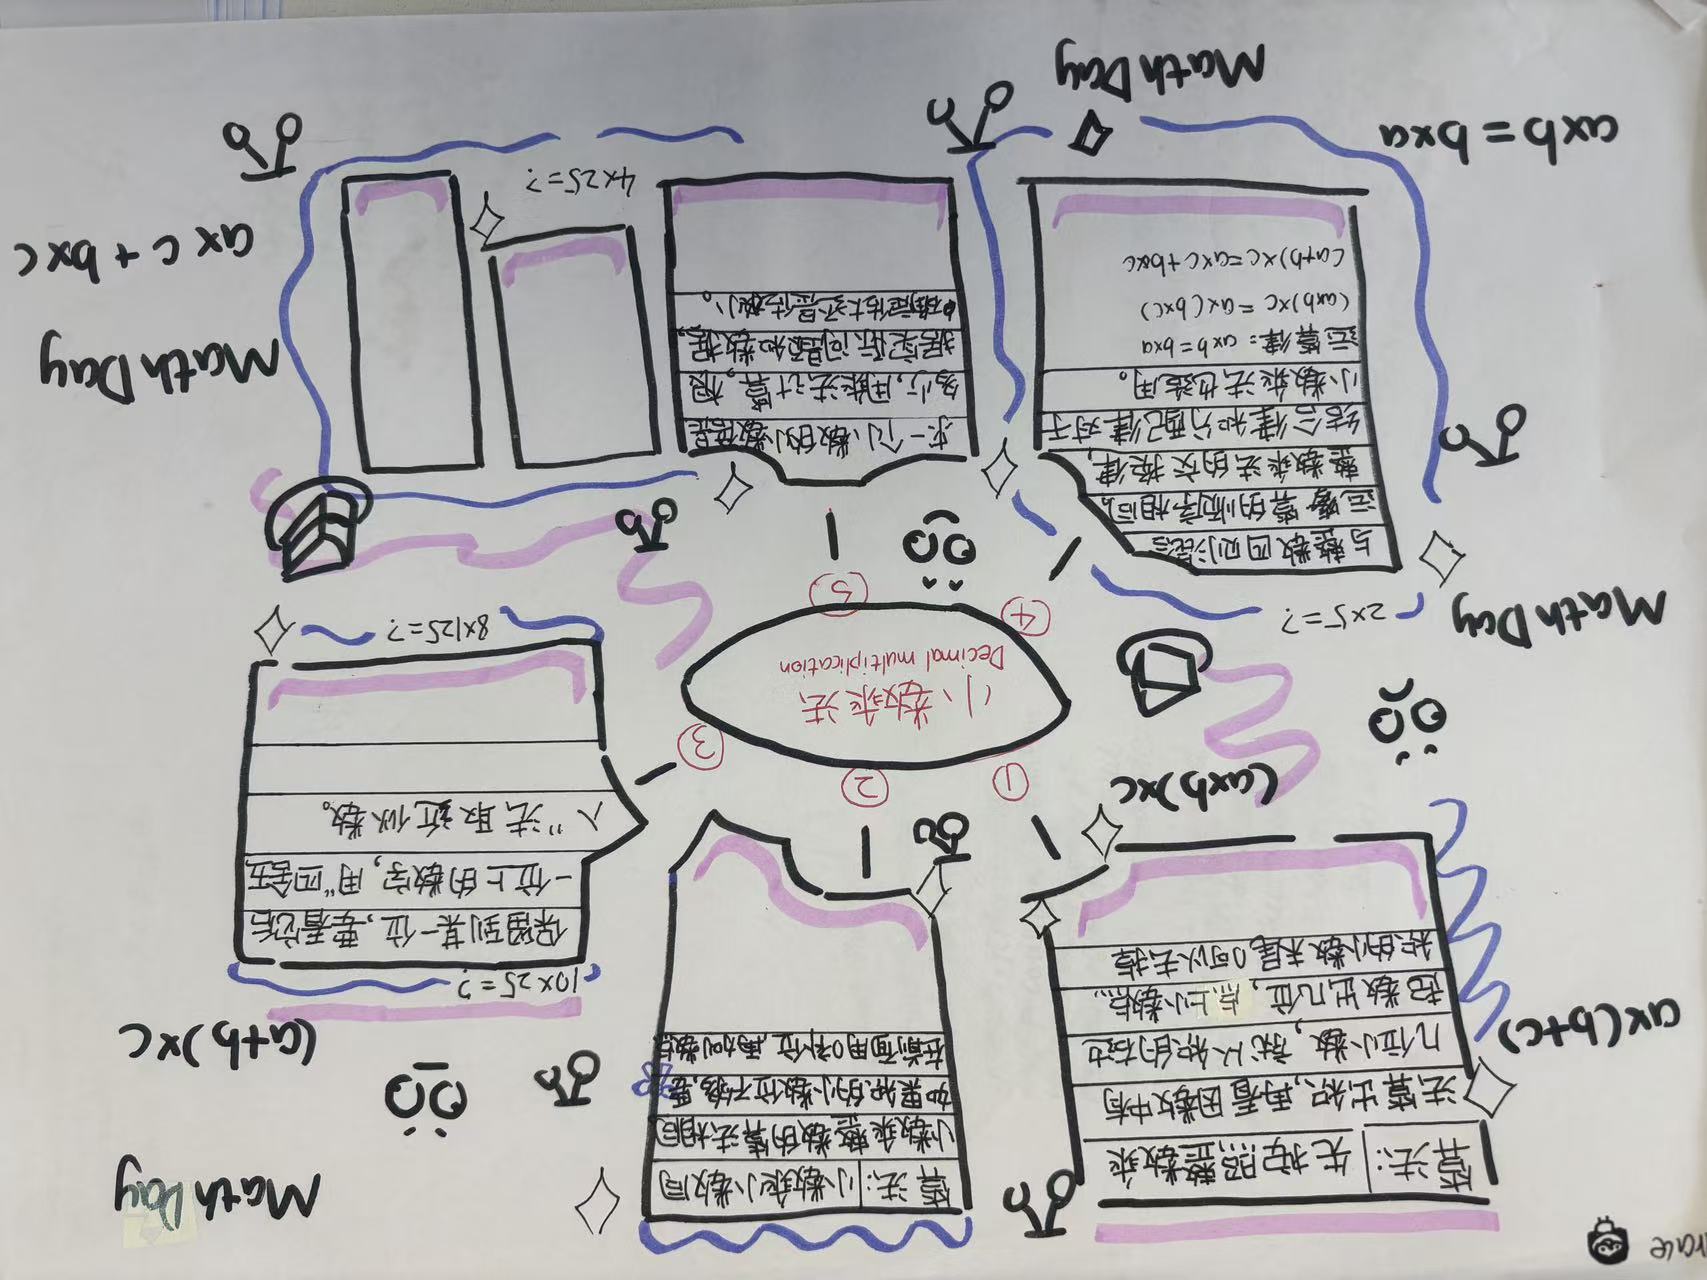 race
算法：先按照整数乘
法算出积，再看因数中有
几位小数，就从积的右边
起数出几位，点上小数点。
积的小数末尾0可以去掉
算法：小数乘小数同
小数乘整数的算法相同
如果积的小数位不够，要
在前面用0补位，再加数点
Math Day
a×(b+c)
(a+b)×c
10×25=?
保留到某一位，要看它后
一位上的数字，用“四舍五
入”法取近似数。
8×125=?
(a×b)×c
①
②
③
小数乘法
Decimal multiplication
④
⑤
Math Day
2×5=?
与整数四则混合
运算的顺序相同
整数乘法的交换律，
结合律和分配律对于
小数乘法也适用。
运算律：a×b=b×a
(a×b)×c=a×(b×c)
(a+b)×c=a×c+b×c
求一个小数的小数倍是
多少，用乘法计算，根
据实际问题和数据，
确定估大还是估小。
4×25=?
Math Day
a×c+b×c
a×b=b×a
Math Day